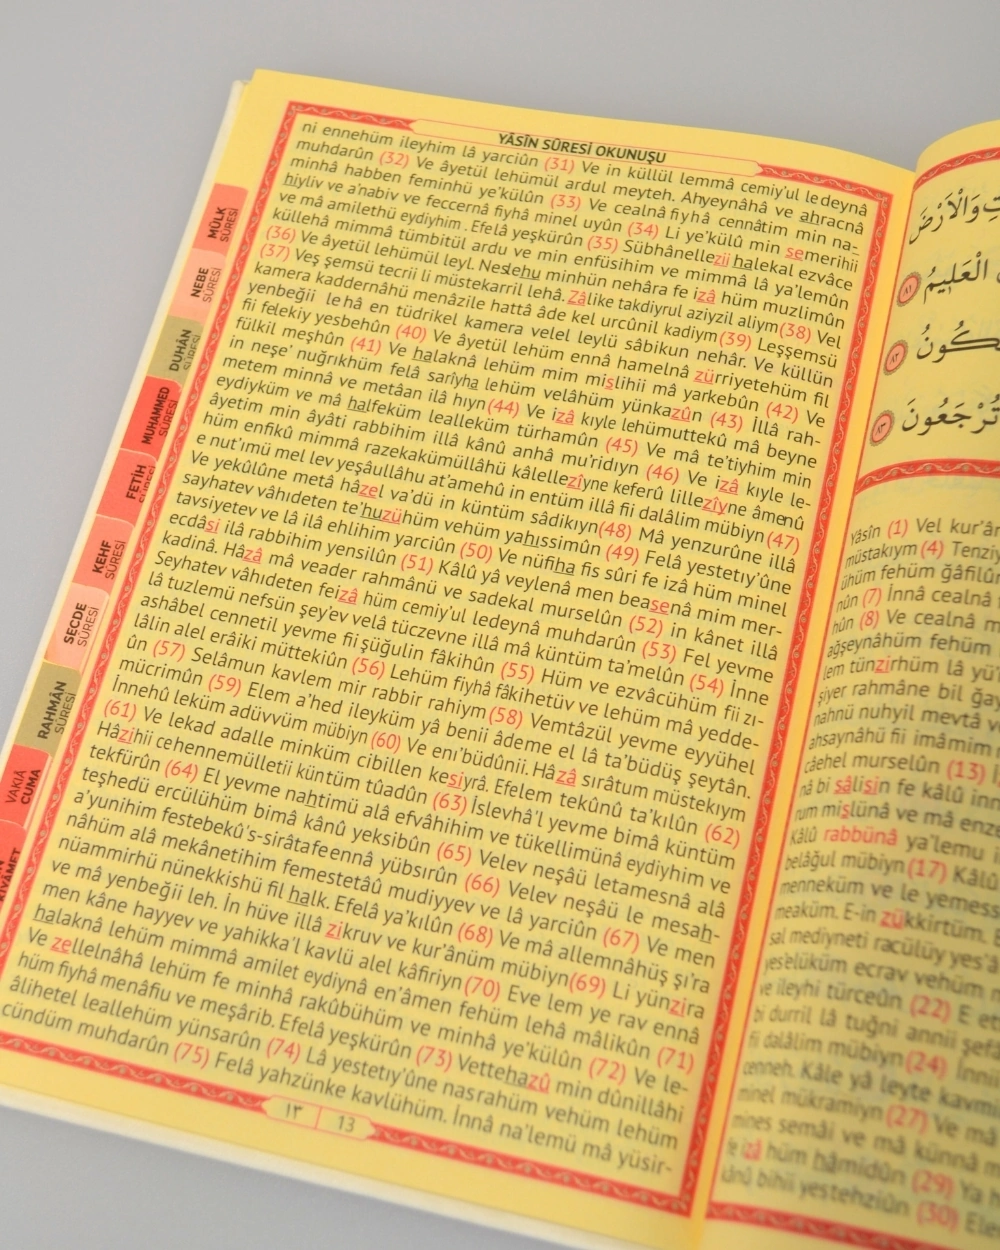 YÂSÎN SÛRESİ OKUNUŞU
ni ennehüm ileyhim lâ yarciûn (31) Ve in küllül lemmâ cemiy'ul ledeynâ
muhdarûn (32) Ve âyetül lehümül ardul meyteh. Ahyeynâhâ ve ahracnâ
minhâ habben feminhü ye'külûn (33) Ve cealnâ fiyhâ cennâtim min na-
hiyliv ve a'nabiv ve feccernâ fiyhâ minel uyûn (34) Li ye'külû min semerihii
ve mâ amilethü eydiyhim . Efelâ yeşkürûn (35) Sübhânellezii halekal ezvâce
küllehâ mimmâ tümbitül ardu ve min enfüsihim ve mimmâ lâ ya'lemûn
(36) Ve âyetül lehümül leyl. Neslehu minhün nehâra fe izâ hüm muzlimûn
(37) Veş şemsü tecrii li müstekarril lehâ. Zâlike takdiyrul aziyzil aliym(38) Vel
kamera kaddernâhü menâzile hattâ âde kel urcûnil kadiym(39) Leşşemsü
yenbeğii lehâ en tüdrikel kamera velel leylü sâbikun nehâr. Ve küllün
fii felekiy yesbehûn (40) Ve âyetül lehüm ennâ hamelnâ zürriyetehüm fil
fülkil meşhûn (41) Ve halaknâ lehüm mim mislihii mâ yarkebûn (42) Ve
in neşe' nuğrıkhüm felâ sarîyha lehüm velâhüm yünkazûn (43) İllâ rah-
metem minnâ ve metâan ilâ hıyn(44) Ve izâ kıyle lehümuttekû mâ beyne
eydiyküm ve mâ halfeküm lealleküm türhamûn (45) Ve mâ te'tiyhim min
âyetim min âyâti rabbihim illâ kânû anhâ mu'ridıyn (46) Ve izâ kıyle le-
hüm enfikû mimmâ razekakümüllâhü kâlellezîyne keferû lillezîyne âmenû
e nut'ımü mel lev yeşâullâhu at'amehû in entüm illâ fii dalâlim mübiyn (47)
Ve yekûlûne metâ hâzel va'dü in küntüm sâdikıyn(48) Mâ yenzurûne illâ
sayhatev vâhıdeten te'huzühüm vehüm yahıssimûn (49) Felâ yestetıy'ûne
tavsiyetev ve lâ ilâ ehlihim yarciûn (50) Ve nüfiha fis sûri fe izâ hüm minel
ecdâsi ilâ rabbihim yensilûn (51) Kâlû yâ veylenâ men beasenâ mim mer-
kadinâ. Hâzâ mâ veader rahmânü ve sadekal murselûn (52) in kânet illâ
Seyhatev vâhıdeten feizâ hüm cemiy'ul ledeynâ muhdarûn (53) Fel yevme
lâ tuzlemü nefsün şey'ev velâ tüczevne illâ mâ küntüm ta'melûn (54) İnne
ashâbel cennetil yevme fii şüğulin fâkihûn (55) Hüm ve ezvâcühüm fii zı-
lâlin alel erâiki müttekiûn (56) Lehüm fiyhâ fâkihetüv ve lehüm mâ yedde-
ûn (57) Selâmun kavlem mir rabbir rahiym (58) Vemtâzül yevme eyyühel
mücrimûn (59) Elem a'hed ileyküm yâ benii âdeme el lâ ta'büdüş şeytân.
İnnehû leküm adüvvüm mübiyn (60) Ve enı'büdûnii. Hâzâ sırâtum müstekıym
(61) Ve lekad adalle minküm cibillen kesiyrâ. Efelem tekûnû ta'kılûn (62)
Hâzihii cehennemülletii küntüm tûadûn (63) İslevhâ'l yevme bimâ küntüm
tekfürûn (64) El yevme nahtimü alâ efvâhihim ve tükellimünâ eydiyhim ve
teşhedü ercülühüm bimâ kânû yeksibûn (65) Velev neşâü letamesnâ alâ
a'yunihim festebekû's-sirâtafe ennâ yübsırûn (66) Velev neşâü le mesah-
nâhüm alâ mekânetihim femestetâû mudiyyev ve lâ yarciûn (67) Ve men
nüammirhü nünekkishü fil halk. Efelâ ya'kılûn (68) Ve mâ allemnâhüş şı'ra
ve mâ yenbeğii leh. İn hüve illâ zikruv ve kur'ânüm mübiyn(69) Li yünzira
men kâne hayyev ve yahikka'l kavlü alel kâfiriyn (70) Eve lem ye rav ennâ
halaknâ lehüm mimmâ amilet eydiynâ en'âmen fehüm lehâ mâlikûn (71)
Ve zellelnâhâ lehüm fe minhâ rakûbühüm ve minhâ ye'külûn (72) Ve le-
hüm fiyhâ menâfiu ve meşârib. Efelâ yeşkürûn (73) Vettehazû min dûnillâhi
âlihetel leallehüm yünsarûn (74) Lâ yestetıy'ûne nasrahüm vehüm lehüm
cündüm muhdarûn (75) Felâ yahzünke kavlühüm. İnnâ na'lemü mâ yüsir-
١٣ 13
MÜLK SÛRESİ
NEBE SÛRESİ
DUHÂN SÛRESİ
MUHAMMED SÛRESİ
FETİH
KEHF SÛRESİ
SECDE SÛRESİ
RAHMÂN SÛRESİ
VAKIA CUMA
KIYÂMET
وَالْاَرْضَ
الْعَلِيمُ ٨١
٨٢
تُرْجَعُونَ ٨٣
Yâsîn (1) Vel kur'ân
müstakıym (4) Tenziy
ühüm fehüm ğâfilûn
nûn (7) İnnâ cealnâ
hûn (8) Ve cealnâ m
ağşeynâhüm fehüm
lem tünzirhüm lâ yü'
şiyer rahmâne bil ğay
nahnü nuhyil mevtâ v
ahsaynâhü fii imâmim
câehel murselûn (13)
nâ bi sâlisin fe kâlû inn
rum mislünâ ve mâ enz
Kâlû rabbünâ ya'lemu
belâğul mübiyn(17) Kâlû
menneküm ve le yemess
meaküm. E-in zükkirtüm.
sal mediyneti racülüy yes'â
yes'elüküm ecrav vehüm
ve ileyhi türceûn (22) E ett
bi durril lâ tuğni annii şefâ
fi dalâlim mübiyn(24) İnnii
cenneh. Kâle yâ leyte kavmi
minel mükramiyn (27) Ve mâ
mines semâi ve mâ künnâ m
fe izâ hüm hâmidûn (29) Ya h
ânû bihii yestehziûn (30) Ele